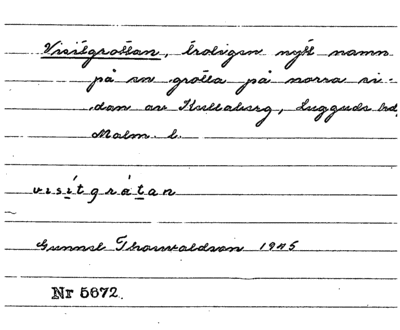 Visitgrottan, troligen nytt namn
på en grotta på norra si-
dan av Kullaberg, Luggude hd,
Malm. l.
visítgråtan
Gunnel Thorvaldson 1945
Nr 5672.